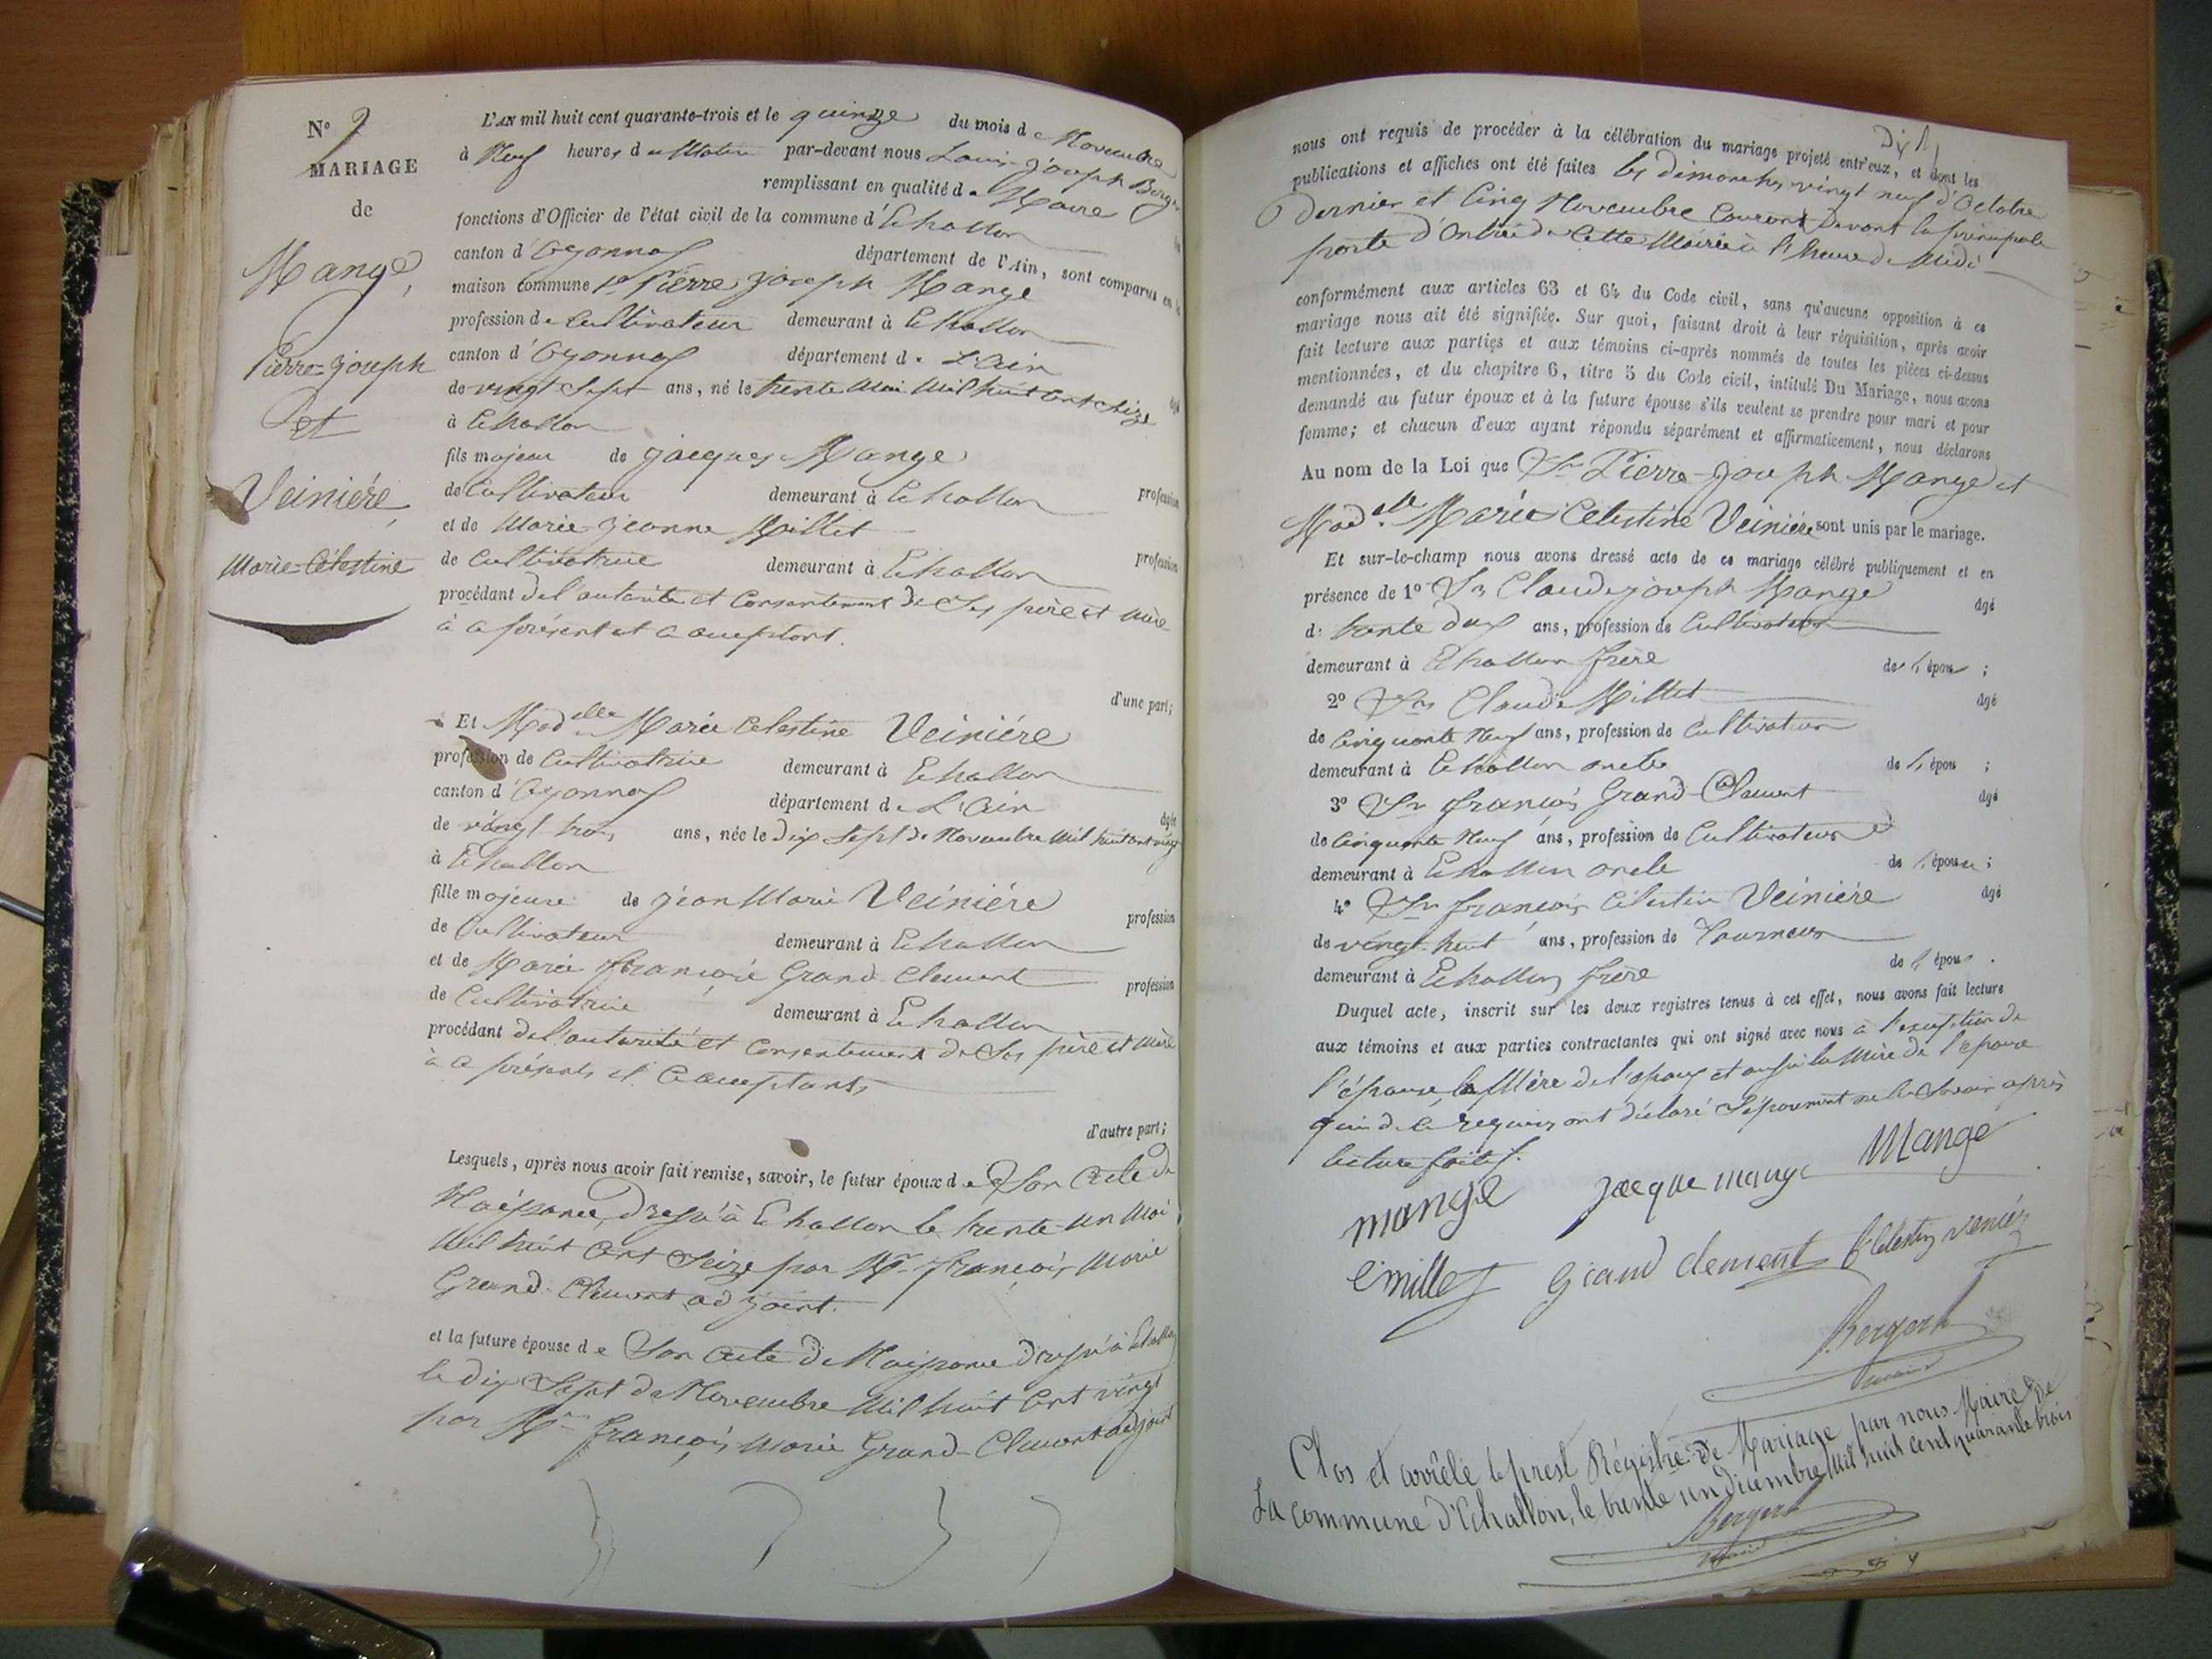 N° 9
MARIAGE
de
Mange,
Pierre=joseph
et
Veiniére,
Marie-Célestine
L'AN mil huit cent quarante-trois et le quinze du mois de Novembre
à Neuf heures du Matin par-devant nous Louis-Joseph
remplissant en qualité de Maire
fonctions d'Officier de l'état civil de la commune d'Echallon
canton d'Oyonnax département de l'Ain, sont comparus en
maison commune Sr Pierre joseph Mange
profession de Cultivateur demeurant à Echallon
canton d'Oyonnax département de L'Ain âgé
de vingt Sept ans, né le trente Mai Mil huit Cent Seize
à Echallon
fils majeur de jacques Mange profession
de Cultivateur demeurant à Echallon
et de Marie-jeanne Millet profession
de Cultivatrice demeurant à Echallon
procédant de l'autorité et Consentement de Ses père et Mère
à ce présent et acceptant.
d'une part;
Et Madelle Marie Celestine Veiniére
profession de Cultivatrice demeurant à Echallon
canton d'Oyonnax département de L'Ain âgée
de vingt trois ans, née le Dix Sept de Novembre Mil huit Cent vingt
à Echallon
fille majeure de jean Marie Veiniére profession
de Cultivateur demeurant à Echallon
et de Marie françoise Grand-Clement profession
de Cultivatrice demeurant à Echallon
procédant de l'autorité et Consentement de Ses père et Mère
à ce présents et acceptants
d'autre part;
Lesquels, après nous avoir fait remise, savoir, le futur époux de Son acte de
Naissance, Dressé à Echallon le trente-un Mai
Mil huit Cent Seize par Mr françois Marie
Grand-Clement adjoint.
et la future épouse de Son acte de Naissance dressé à Echallon
le dix Sept de Novembre Mil huit Cent vingt
par Mr françois Marie Grand-Clement adjoint
Dix
nous ont requis de procéder à la célébration du mariage projeté entr'eux, et dont les
publications et affiches ont été faites les dimanches vingt neuf d'Octobre
Dernier et Cinq Novembre Courant Devant la principale
porte d'Entrée de Cette Mairie à l'heure de Midi
conformément aux articles 63 et 64 du Code civil, sans qu'aucune opposition à ce
mariage nous ait été signifiée. Sur quoi, faisant droit à leur réquisition, après avoir
fait lecture aux parties et aux témoins ci-après nommés de toutes les pièces ci-dessus
mentionnées, et du chapitre 6, titre 5 du Code civil, intitulé Du Mariage, nous avons
demandé au futur époux et à la future épouse s'ils veulent se prendre pour mari et pour
femme; et chacun d'eux ayant répondu séparément et affirmativement, nous déclarons
Au nom de la Loi que Sr Pierre-joseph Mange et
Madelle Marie Celestine Veiniére sont unis par le mariage.
Et sur-le-champ nous avons dressé acte de ce mariage célébré publiquement et en
présence de 1° Sr Claude joseph Mange âgé
de trente deux ans, profession de Cultivateur
demeurant à Echallon frère de l'époux ;
2° Sr Claude Millet âgé
de Cinquante Neuf ans, profession de Cultivateur
demeurant à Echallon oncle de l'épou ;
3° Sr françois Grand-Clement âgé
de Cinquante Neuf ans, profession de Cultivateur
demeurant à Echallon oncle de l'épouse ;
4° Sr françois Célestin Veiniére âgé
de vingt-huit ans, profession de Tourneur
demeurant à Echallon frère de l'épouse .
Duquel acte, inscrit sur les deux registres tenus à cet effet, nous avons fait lecture
aux témoins et aux parties contractantes qui ont signé avec nous à l'exception de
l'épouse, la Mère de l'époux et aussi la Mère de l'épouse
qui de ce requises ont déclaré Séparément ne le Savoir après
lecture faite.
mange jacque mange Mange
C millet Grand clement f. Célestin
Bergert
maire
Clos et arrêté le prest Régistre de Mariage par nous Maire de
La commune d'Echallon, le trente un dicembre Mil huit cent quarante trois
Bergert
maire